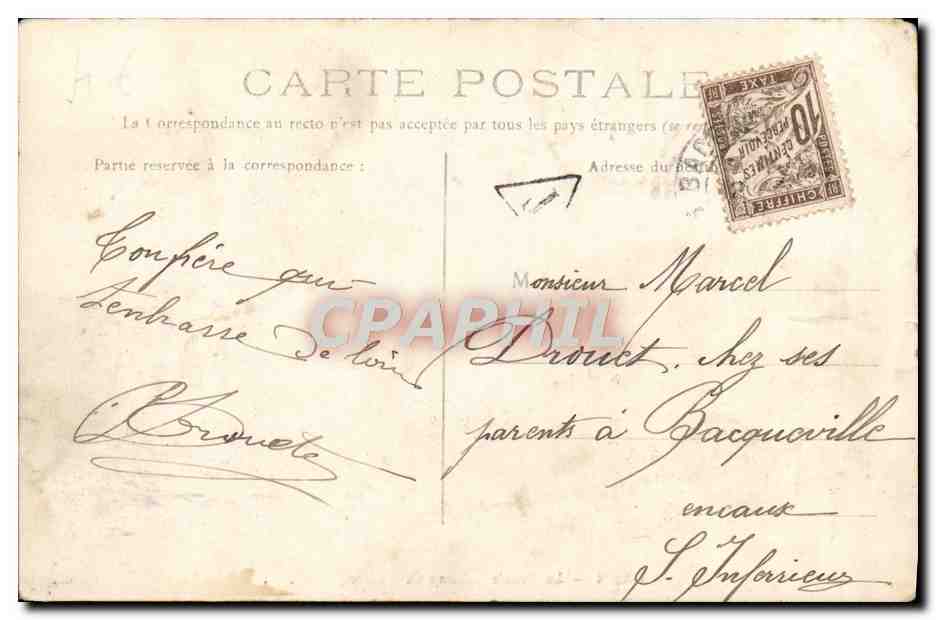 CARTE POSTALE
La Correspondance au recto n'est pas acceptée par tous les pays étrangers (se
Partie réservée à la correspondance :
Adresse du
CHIFFRE
TAXE
POSTES
10
CENTIMES
À PERCEVOIR
RF
Ton frère qui
t'embrasse de loin
Drouet
Monsieur Marcel
Drouet, chez ses
parents à Bacqueville
encaux
S. Inferrieur
CPAPHIL